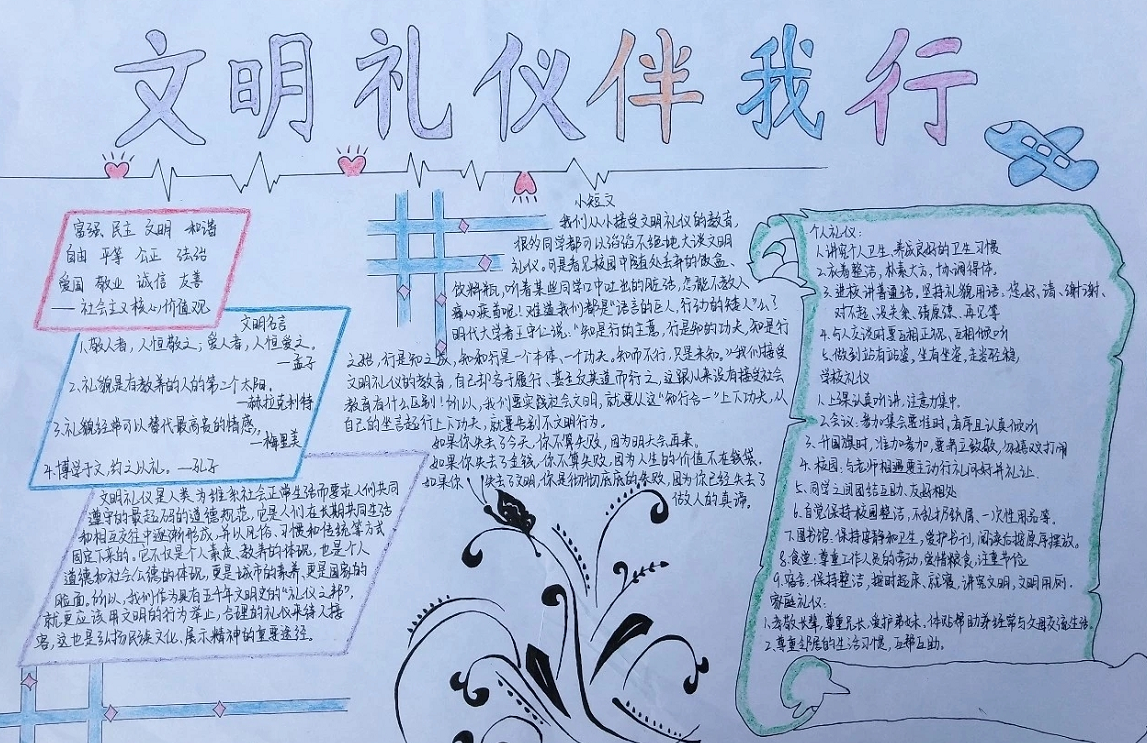 文明礼仪伴我行
富强 民主 文明 和谐
自由 平等 公正 法治
爱国 敬业 诚信 友善
—社会主义核心价值观
文明名言
1.敬人者,人恒敬之;爱人者,人恒爱之。
—孟子
2.礼貌是有教养的人的第二个太阳。
—赫拉克利特
3.礼貌经常可以替代最高贵的情感。
—梅里美
4.博学于文,约之以礼。—孔子
文明礼仪是人类为维系社会正常生活而要求人们共同
遵守的最起码的道德规范,它是人们在长期共同生活
和相互交往中逐渐形成,并以风俗、习惯和传统等方式
固定下来的。它不仅是个人素质、教养的体现,也是个人
道德和社会公德的体现,更是城市的素养、更是国家的
脸面。所以,我们作为具有五千年文明史的“礼仪之邦”,
就更应该用文明的行为举止,合理的礼仪来待人接
客,这也是弘扬民族文化、展示精神的重要途径。
小短文
我们从小接受文明礼仪的教育,
很多同学都可以滔滔不绝地大谈文明
礼仪。可是看见校园中随处丢弃的饭盒、
饮料瓶,听着某些同学口中吐出的脏话,怎能不教人
痛心疾首呢!难道我们都是“语言的巨人,行动的矮人”么?
明代大学者王守仁说:“知是行的主意,行是知的功夫,知是行
之始,行是知之成,知和行是一个本体、一个功夫。知而不行,只是未知。”我们接受
文明礼仪的教育,自己却吝于履行、甚至反其道而行之,这跟从来没有接受社会
教育有什么区别!所以,我们要实践社会文明,就要从这“知行合一”上下功夫,从
自己的坐言起行上下功夫,就要告别不文明行为。
如果你失去了今天,你不算失败,因为明天会再来。
如果你失去了金钱,你不算失败,因为人生的价值不在钱袋。
如果你失去了文明,你是彻彻底底的失败,因为你已经失去了
做人的真谛。
个人礼仪:
1.讲究个人卫生,养成良好的卫生习惯
2.衣着整洁,朴素大方,协调得体。
3.进校讲普通话,坚持礼貌用语。您好、请、谢谢、
对不起、没关系、请原谅、再见等
4.与人交谈时要互相正视、互相倾听
5.做到站有站姿,坐有坐姿,走姿正稳,
学校礼仪
1.上课认真听讲,注意力集中。
2.会议:参加集会要准时,肃静且认真倾听
3.升国旗时,准时参加,要肃立致敬,勿嬉戏打闹
4.校园:与老师相遇要主动行礼问好并礼让。
5.同学之间团结互助、友好相处
6.自觉保持校园整洁,不乱扔纸屑、一次性用品等。
7.图书馆:保持安静和卫生,爱护书刊,阅读后按原序摆放。
8.食堂:尊重工作人员的劳动,爱惜粮食,注重节位
9.宿舍:保持整洁,按时起床、就寝,讲究文明,文明用网.
家庭礼仪:
1.孝敬长辈,尊重兄长,爱护弟妹,体贴帮助并经常与父母交流生活.
2.尊重邻居的生活习惯,互帮互助。